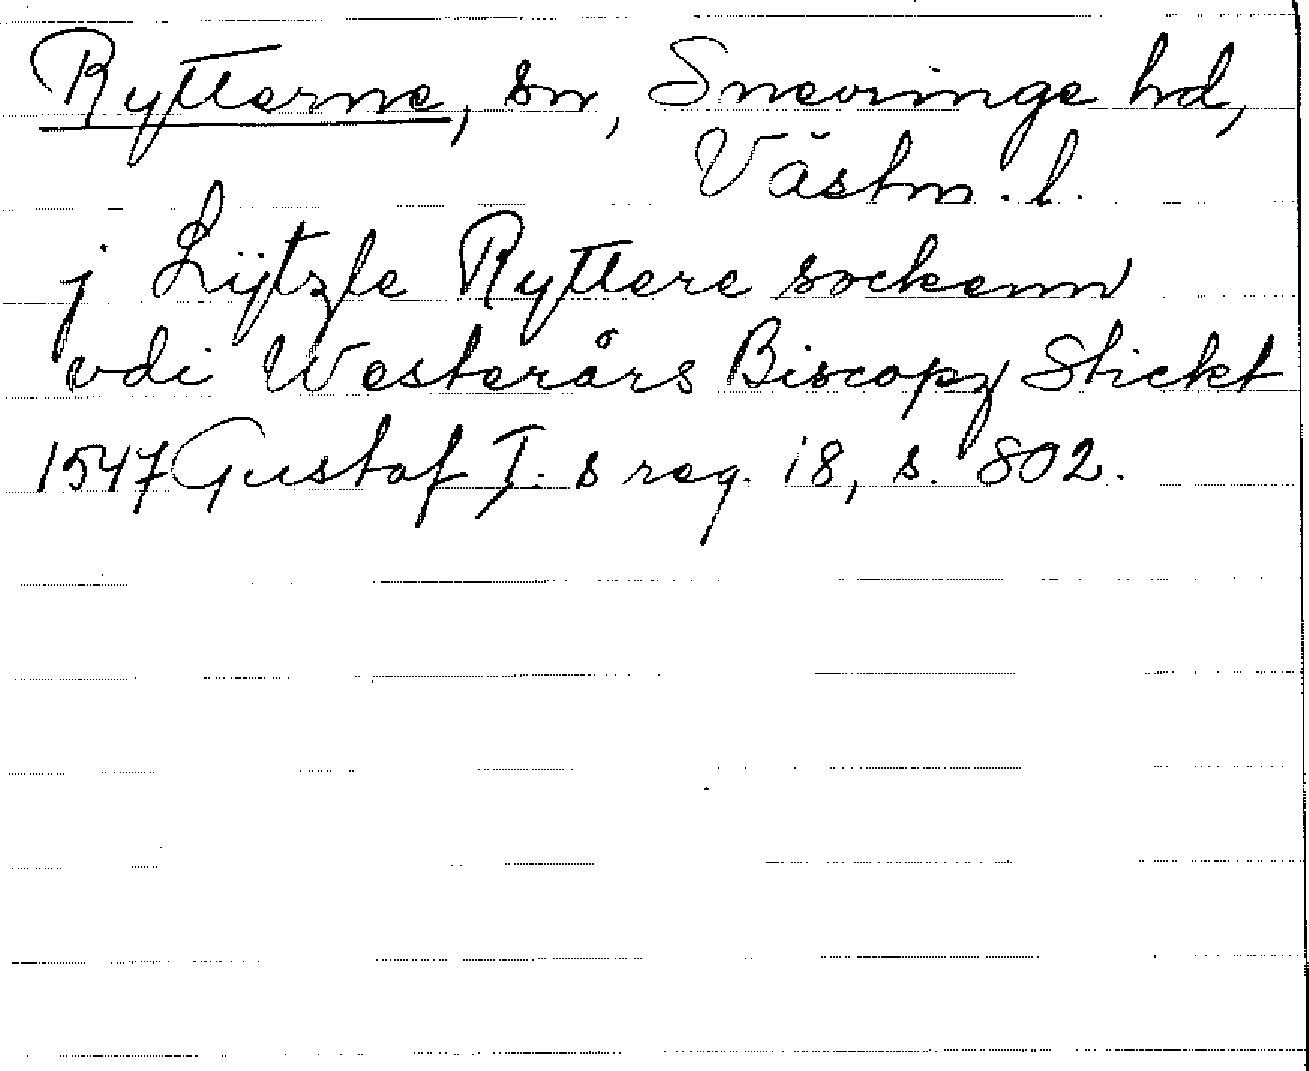 Rytterne, sn, Snevringe hd,
Västm. l.
j Lijtzle Ryttere sockenn
vdi Westerårs Biscopz Stickt
1547 Gustaf I. s reg. 18, s. 802.